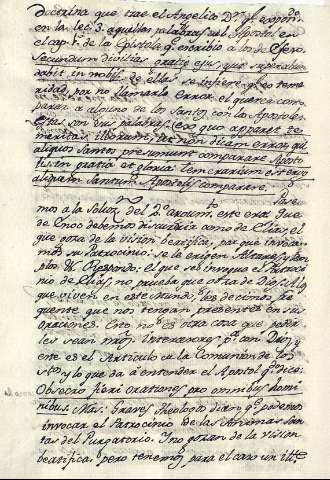 doctrina que trae el Angelico Dr. qe. expondo.
en la lec. 3. aquellas palabras del Apostol en
el cap. 1. de la Epistola qe. escribio a los de Efeso.
Secundum divitias gratiæ ejus, quæ superabun
dabit in nobis: de ellas se infiere qe. es teme
ridad, por no llamarle error, el querer com
parar a alguno de los Santos con los Apostoles.
estas son sus palabras (ex quo apparet te
meritas illorum, ut non dicam error, qui
aliquos Santos presumunt comparare Aposto
lis in gratia et gloria. Temerarium est ergo
aliquem Sanctum Apostolis comparare.
Pase
mos a la Soluzn. del 2o. argumto. este era: Que
de Enoc debemos discurrir como de Elias, el
que goza de la vision beatifica, por que invoca
mos su Patrocinio: se le erigen Altares, y Tem
plos &. Respondo: el que se invoque el Patroci
nio de Elias, no prueba que goza de Dios. A los
que viven en este mundo, les decimos fre
quente que nos tengan presentes en sus
oraciones. Esto no es otra cosa que pedir
les sean nros. Intercesores pa. con Dios, y
este es el Articulo de la Comunion de los
Stos. y lo que da â entender el Apostol qdo. dice:
Obsecro fieri orationes pro omnibus homi
nibus. Mas: Graves Theologos dicen qe. podemos
invocar el Patrocinio de las Animas San
tas del Purgatorio. No gozan de la vision
beatifica: pero tenemos para el caso un ilte.